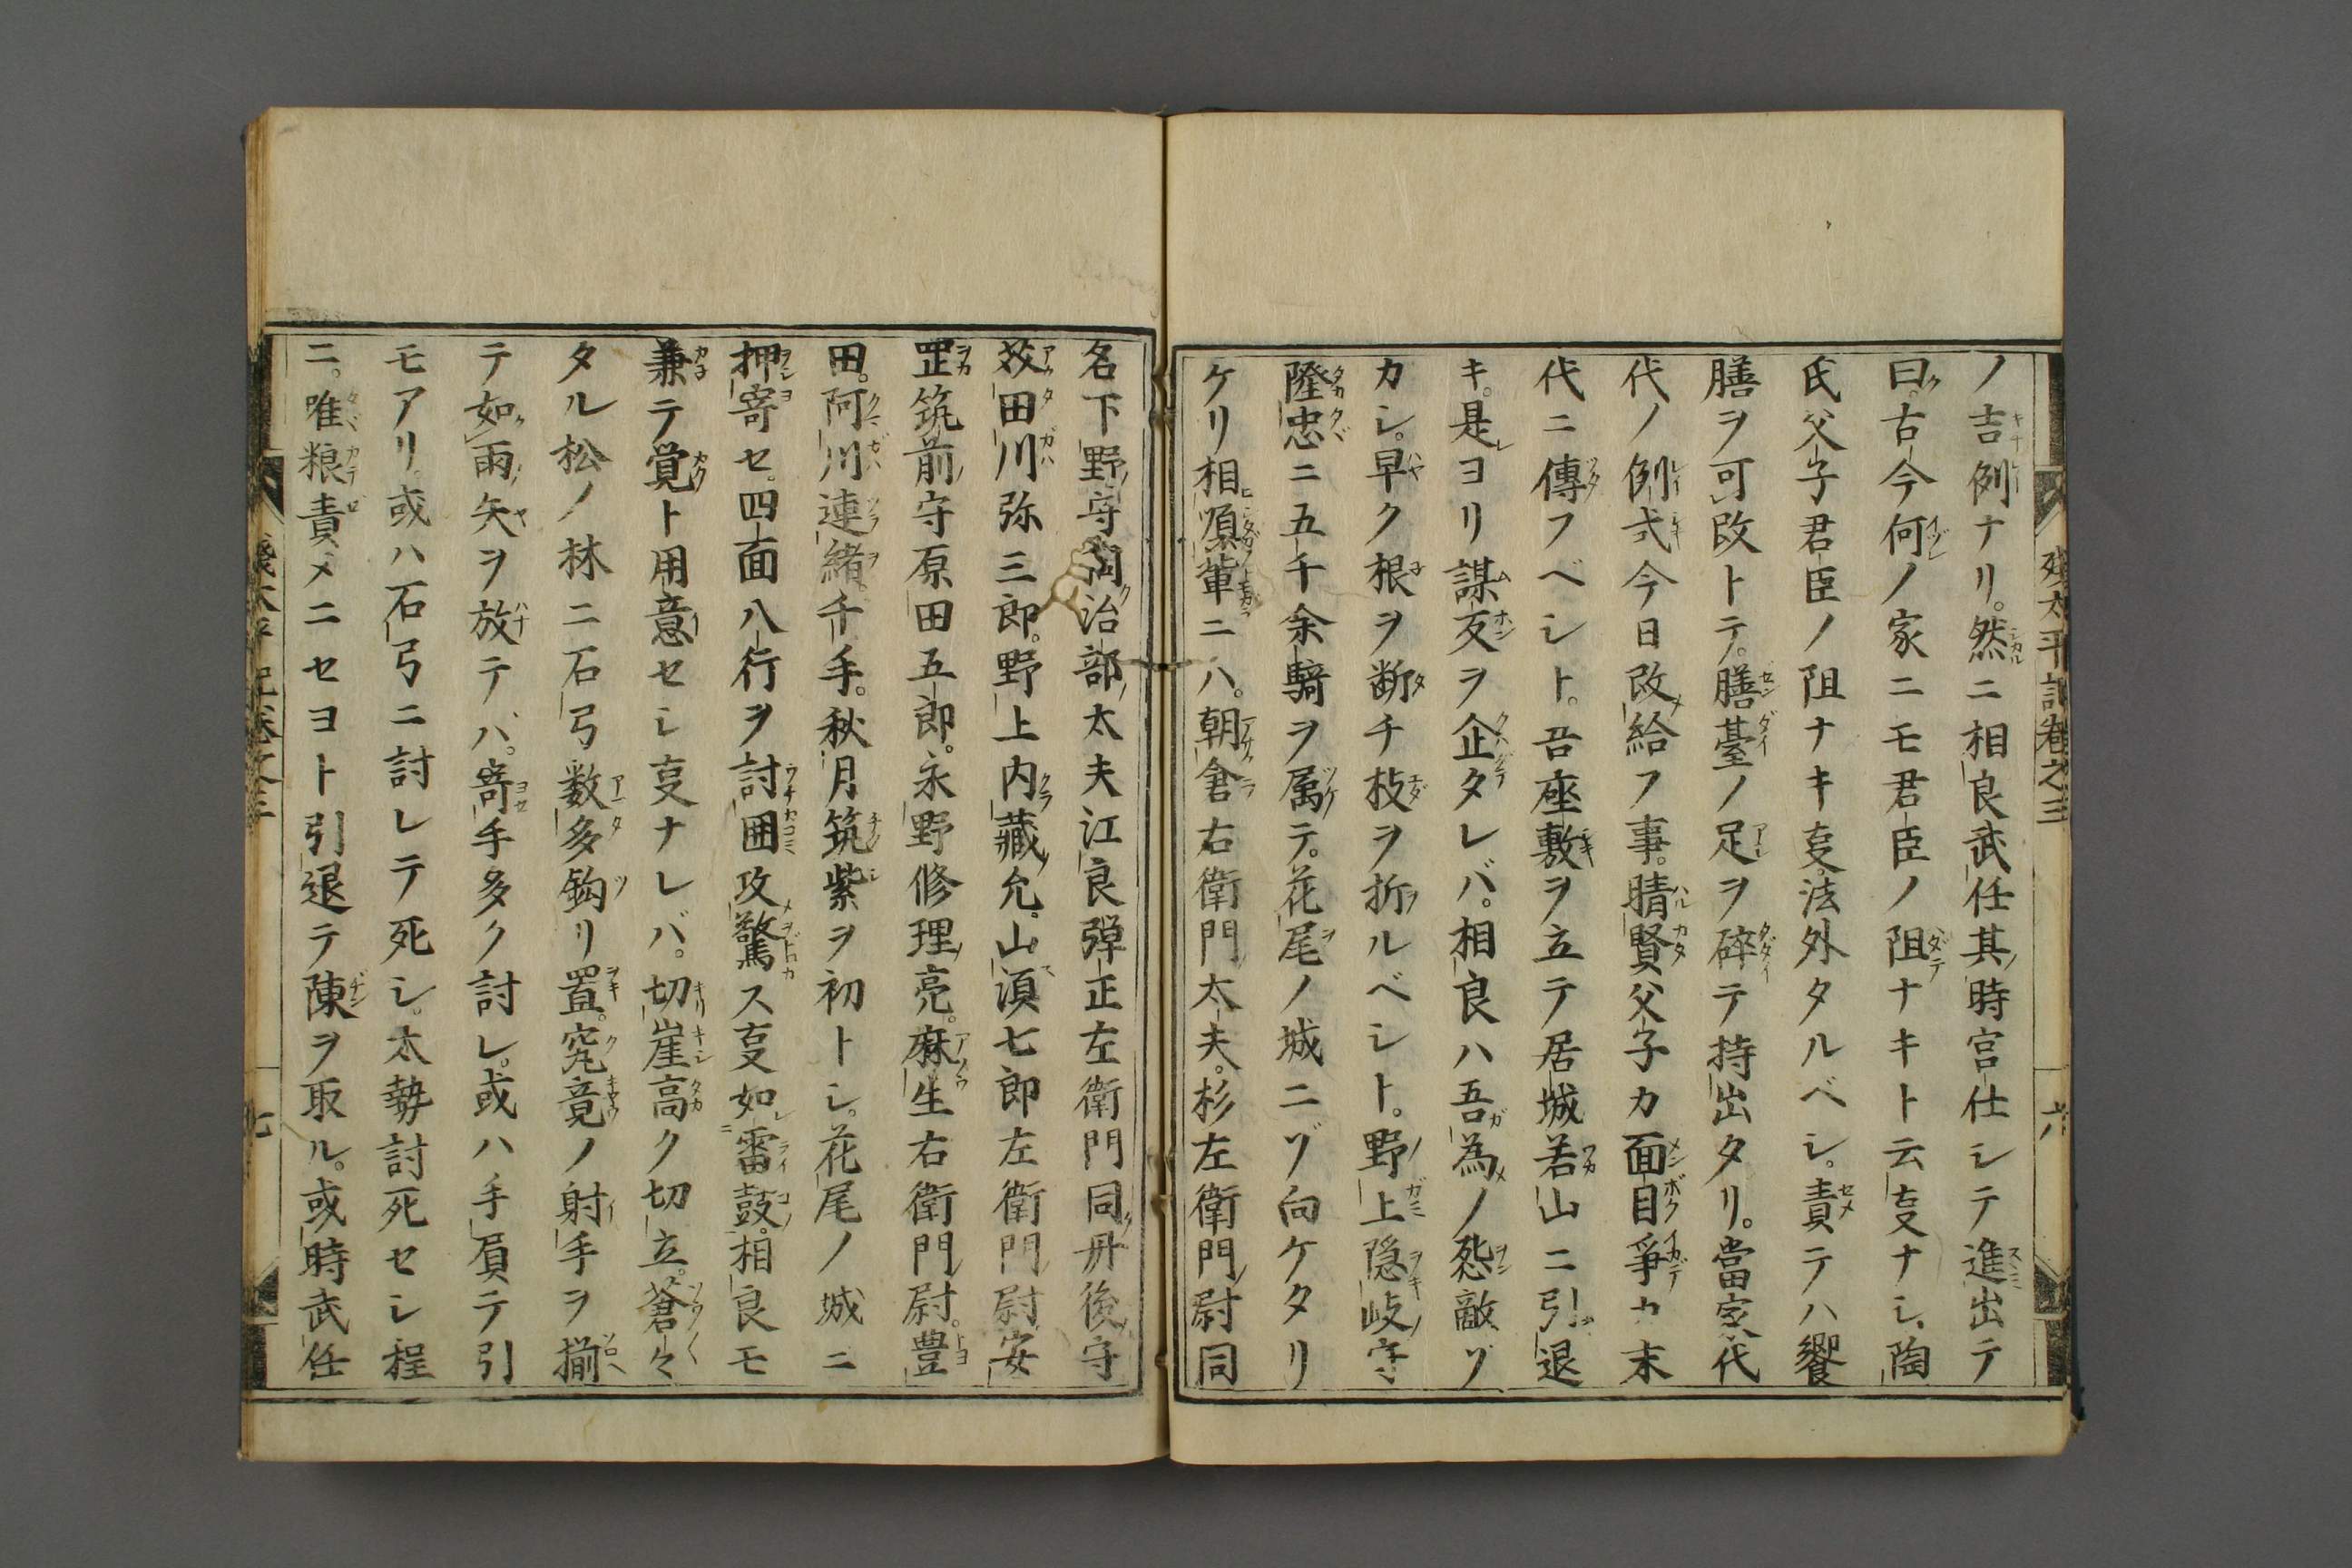 残太平記巻之三
六
ノ吉例ナリ。然ニ相良武任其時宮仕シテ進出テ
曰。古今何ノ家ニモ君臣ノ阻ナキト云叓ナシ。陶
氏父子君臣ノ阻ナキ叓。法外タルベシ。責テハ饗
膳ヲ可改トテ。膳臺ノ足ヲ碎テ持出タリ。當家代
代ノ例式今日改給フ事。晴賢父子カ面目爭カ末
代ニ傳フベシト。吾座敷ヲ立テ居城若山ニ引退
キ。是ヨリ謀反ヲ企タレバ。相良ハ吾為ノ怨敵ゾ
カシ。早ク根ヲ断チ枝ヲ折ルベシト。野上隠岐守
隆忠ニ五千余騎ヲ属テ。花尾ノ城ニゾ向ケタリ
ケリ相順輩ニハ。朝倉右衛門太夫。杉左衛門尉同
名下野守陶治部太夫江良弾正左衛門同丹後守
敍田川弥三郎。野上内藏允。山湏七郎左衛門尉安
罡筑前守原田五郎。永野修理亮。麻生右衛門尉。豊
田。阿川連緒。千手。秋月筑紫ヲ初トシ。花尾ノ城ニ
押寄セ。四面八行ヲ討囲攻驚ス叓如雷鼓。相良モ
兼テ覚ト用意セシ叓ナレバ。切崖高ク切立。蒼々
タル松ノ林ニ石弓数多鈎リ置。究竟ノ射手ヲ揃
テ如雨矢ヲ放テバ。寄手多ク討レ。或ハ手屓テ引
モアリ。或ハ石弓ニ討レテ死シ。太勢討死セシ程
ニ。唯粮責メニセヨト引退テ陳ヲ取ル。或時武任
残太平記巻之三
七